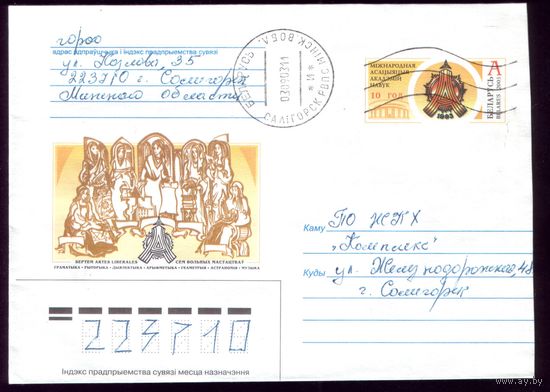 город
адрас адпраўшчыка і індэкс прадпрыемства сувязі
ул. Козлова, 35
223710 г. Солигорск
Минской области
БЕЛАРУСЬ МІНСК. ВОБЛ.
САЛІГОРСК РВПС
МІЖНАРОДНАЯ
АСАЦЫЯЦЫЯ
АКАДЭМІЙ
НАВУК
10 ГОД
1993
A
БЕЛАРУСЬ
BELARUS 2003
SEPTEM ARTES LIBERALES СЕМ ВОЛЬНЫХ МАСТАЦТВАЎ
ГРАМАТЫКА • РЫТОРЫКА • ДЫЯЛЕКТЫКА • АРЫФМЕТЫКА • ГЕАМЕТРЫЯ • АСТРАНОМІЯ • МУЗЫКА
Каму ПО ЖКХ
"Комплекс"
Куды ул. Железнодорожная, 48
г. Солигорск
223710
Індэкс прадпрыемства сувязі месца назначэння
www.ay.by